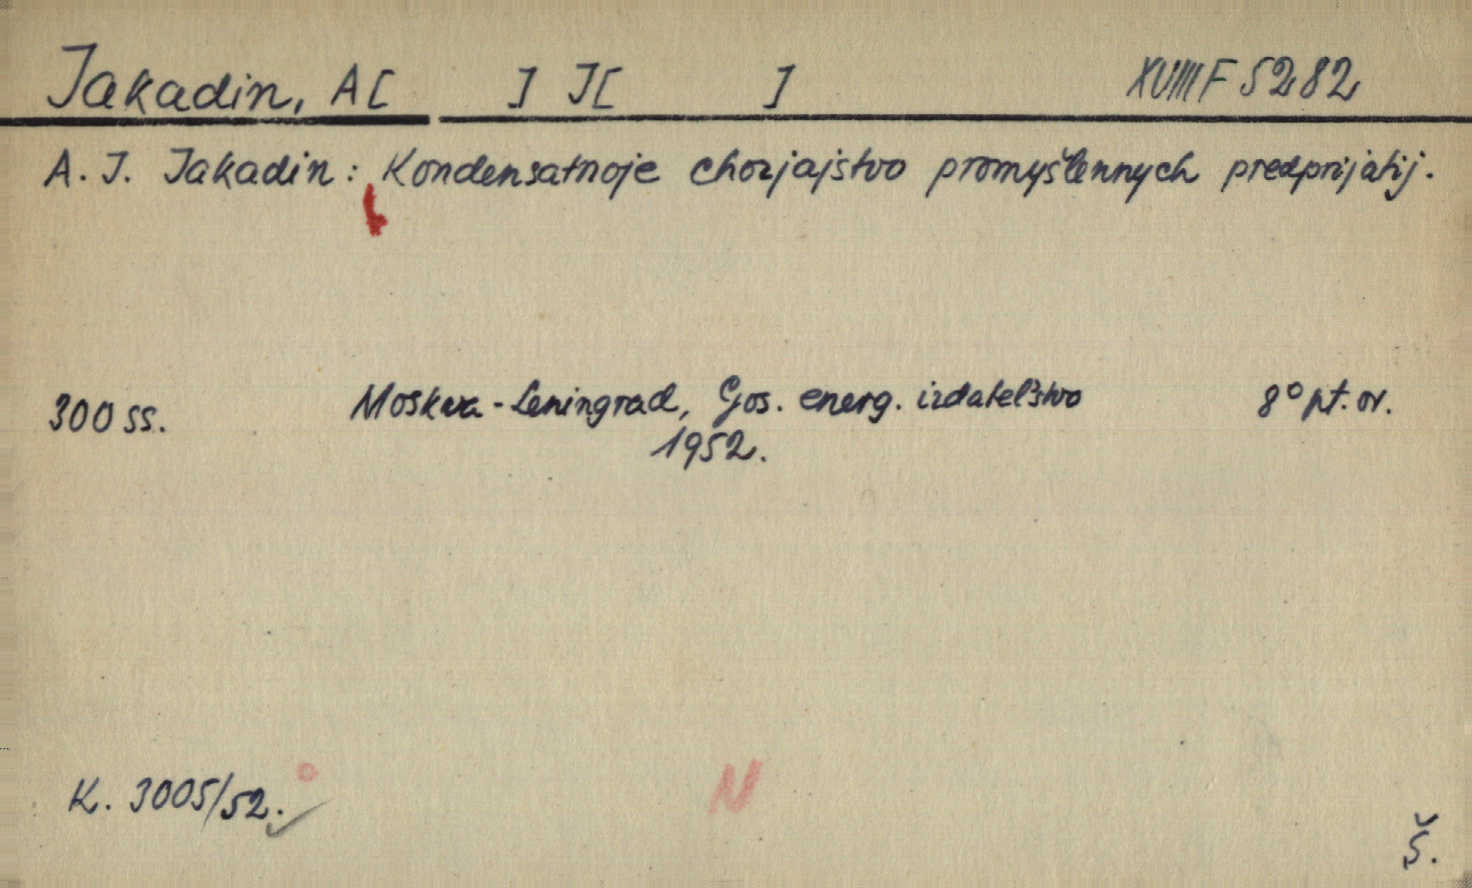 Jakadin, A[ ] J[ ] XVIII F 5282
A. J. Jakadin: Kondensatnoje chozjajstvo promyšlennych predprijatij.
300 ss. Moskva-Leningrad, Gos. energ. izdatel'stvo 8° pt. or.
1952.
K. 3005/52.
N
Š.